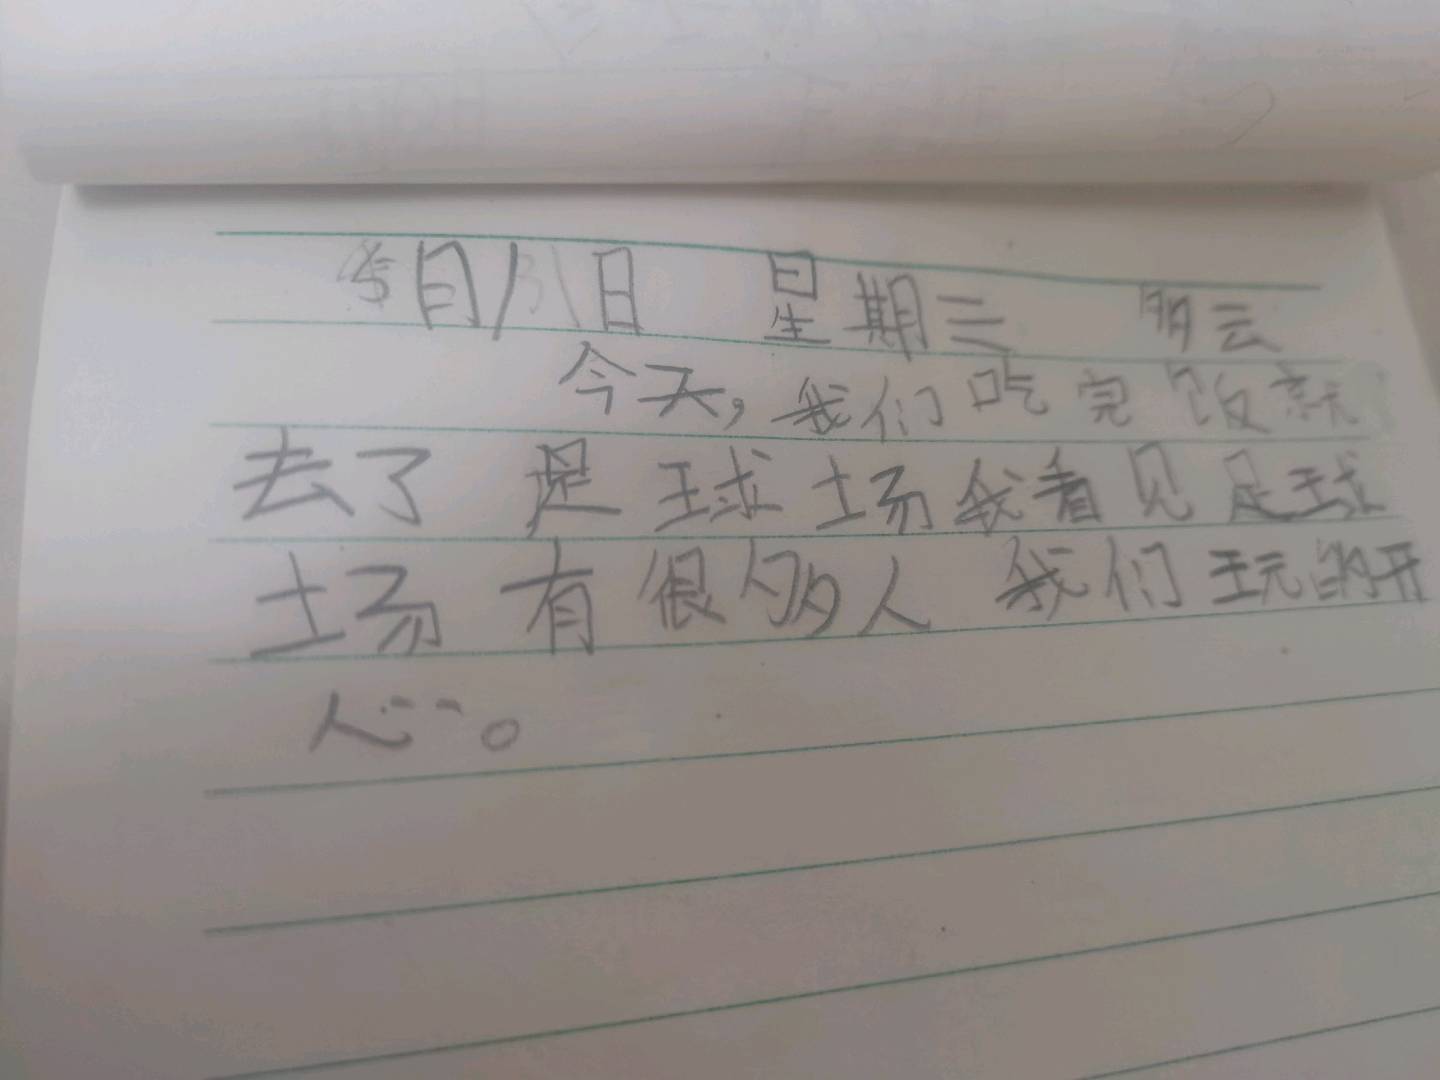 月八日 星期三 多云
今天，我们吃完饭就
去了 足球场我看见足球
场有很多人 我们玩的开
心。